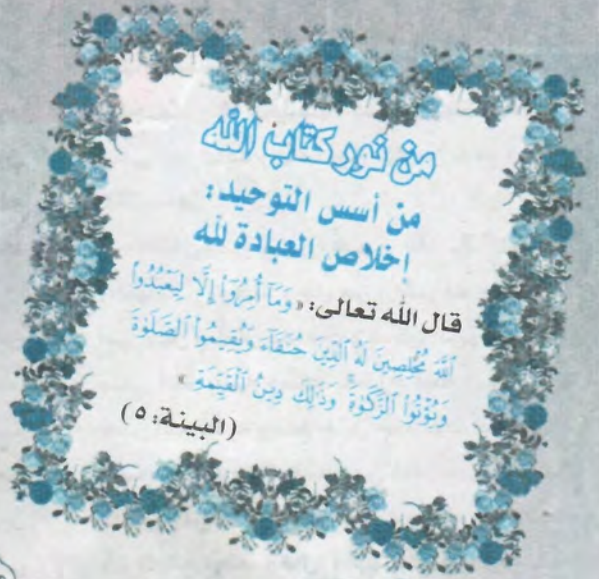 من نور كتاب الله
من أسس التوحيد:
إخلاص العبادة لله
قال الله تعالى: «وَمَا أُمِرُوٓا۟ إِلَّا لِيَعْبُدُوا۟
ٱللَّهَ مُخْلِصِينَ لَهُ ٱلدِّينَ حُنَفَآءَ وَيُقِيمُوا۟ ٱلصَّلَوٰةَ
وَيُؤْتُوا۟ ٱلزَّكَوٰةَ ۚ وَذَٰلِكَ دِينُ ٱلْقَيِّمَةِ»
(البينة: ٥)